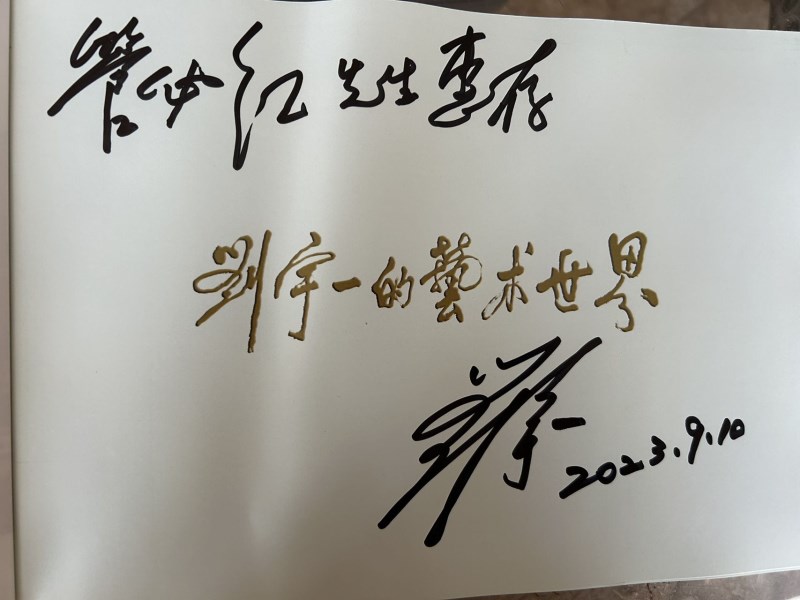 管红先生惠存
劉宇一的藝术世界
刘宇一 2023.9.10